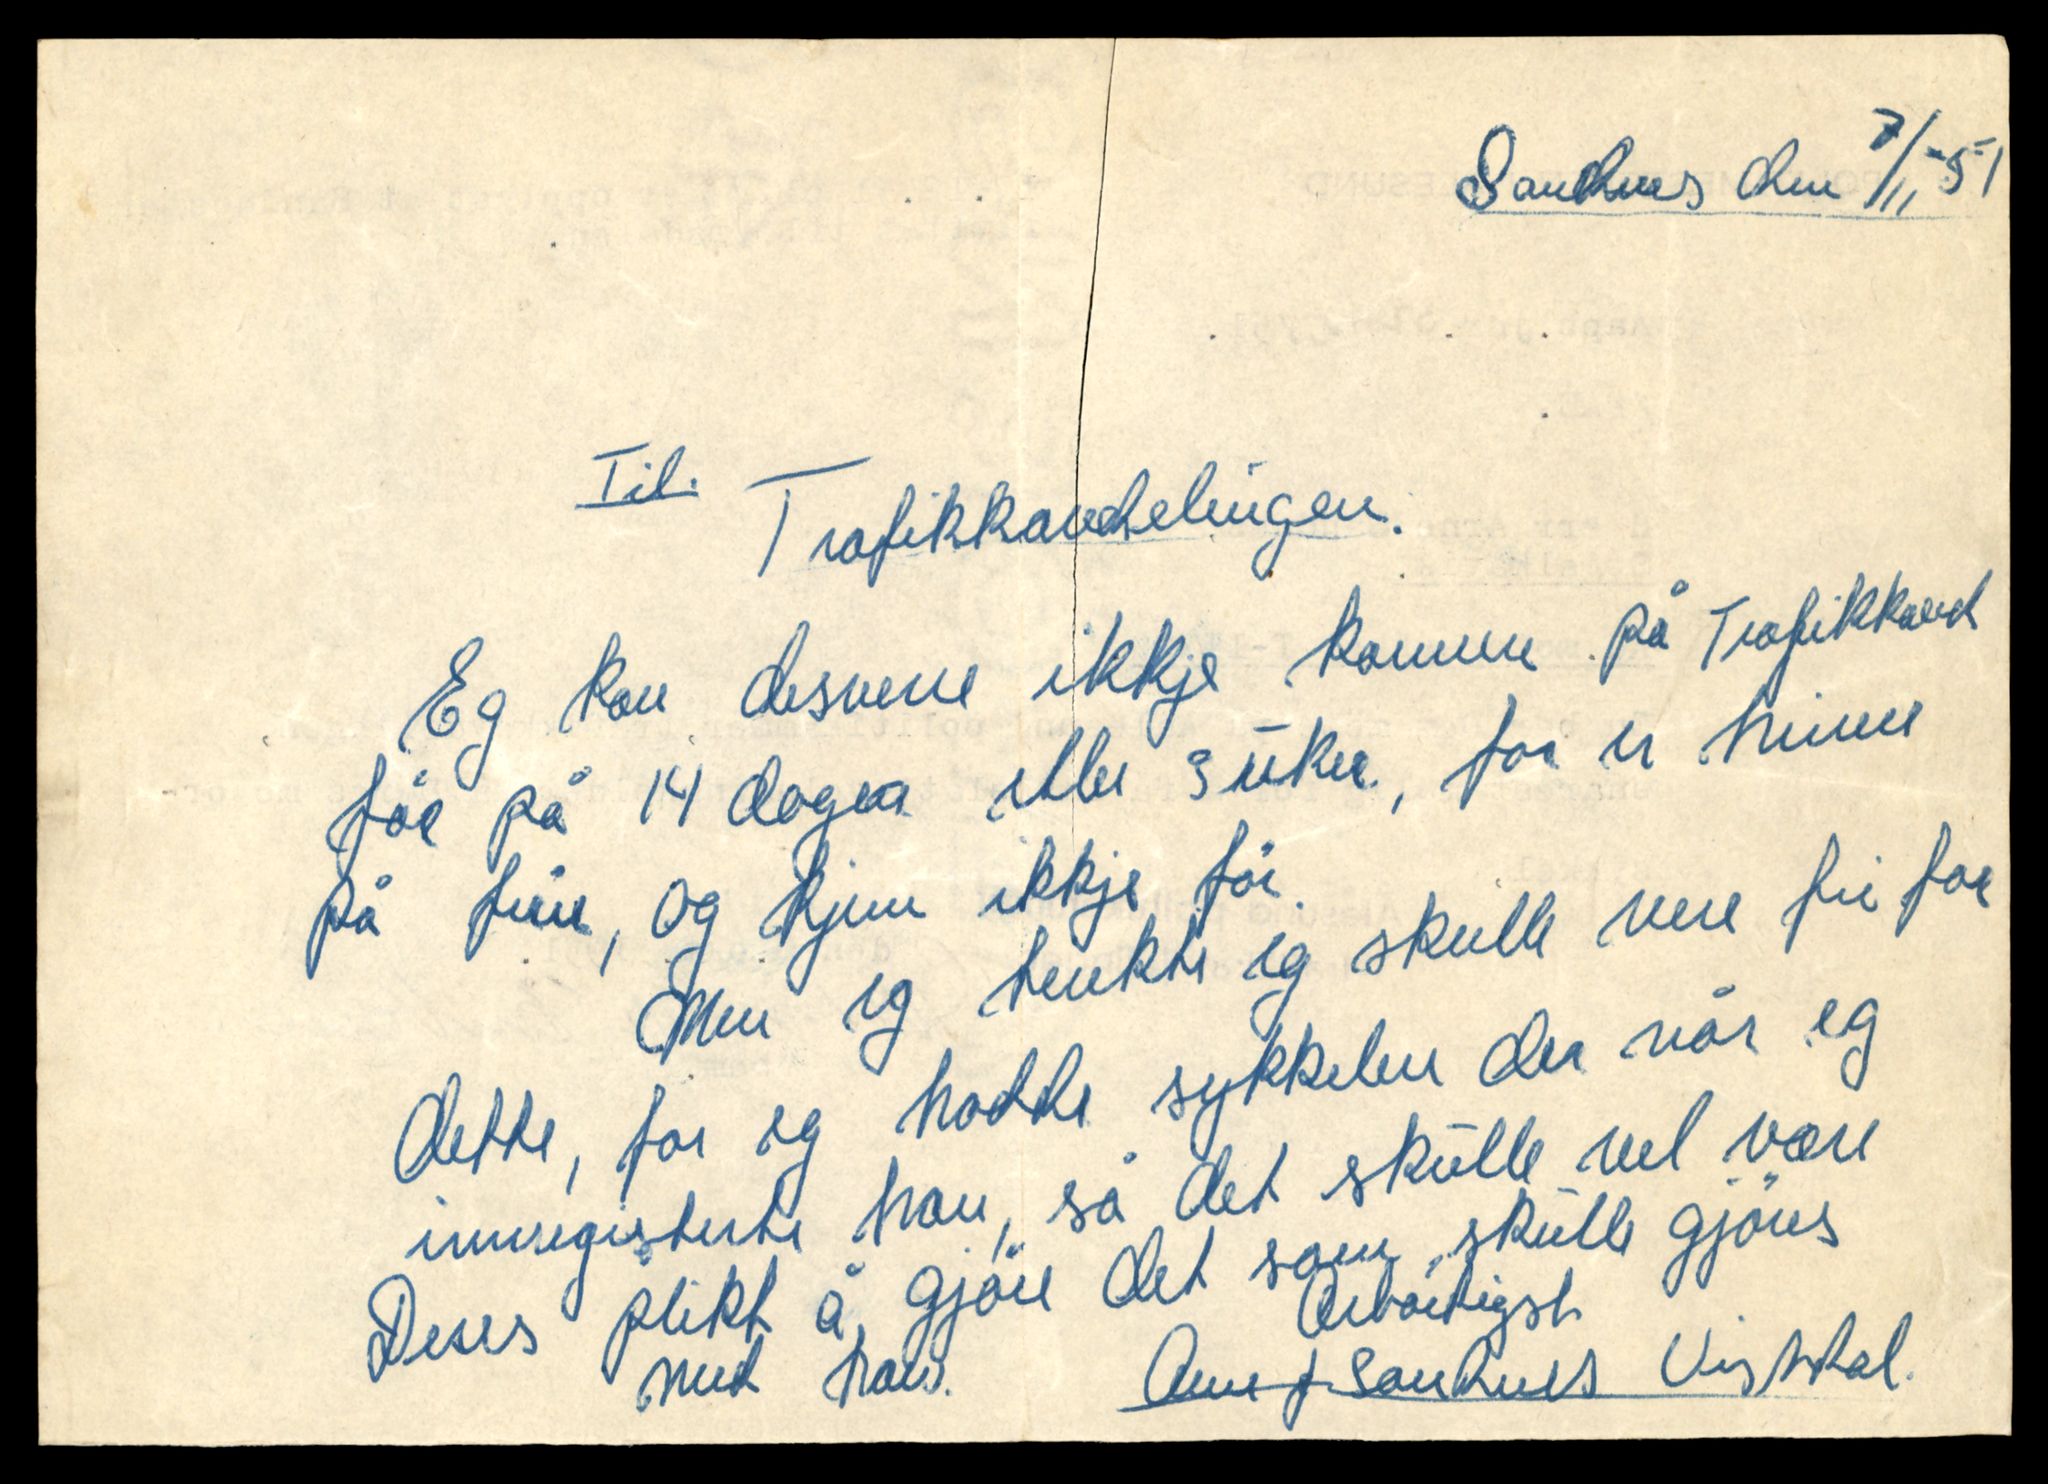 Sandnes den 7/11-51
Til.
Trafikkavdelingen.
Eg kan desverre ikkje komme på Trafikkavd
för på 14 dagar eller 3 uker, for er hime
på frie, og kjem ikkje för.
Men eg tenkte eg skulle vere fri for
dette, for eg hadde sykkelen der når eg
innregisterte han, så det skulle vel være
Deres plikt å gjöre det som skulle gjöres
med han.
Arbödigst
Arne J Sandnes Vistdal.